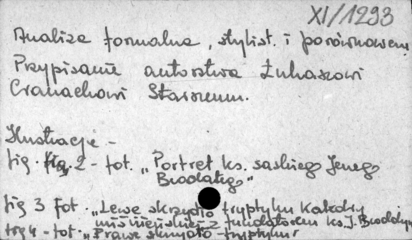 XI/1293
Analiza formalna, stylist. i porównawcza
Przypisanie autorstwa Łukaszowi
Cranachowi Starszemu.
Ilustracje -
fig. 2 - fot. „Portret ks. saskiego Jerzego
Brodatego"
fig 3 fot. „Lewe skrzydło tryptyku Katedry
miśnieńskiej z fundatorem ks. J. Brodatym
fig 4 - fot. „Prawe skrzydło tryptyku"